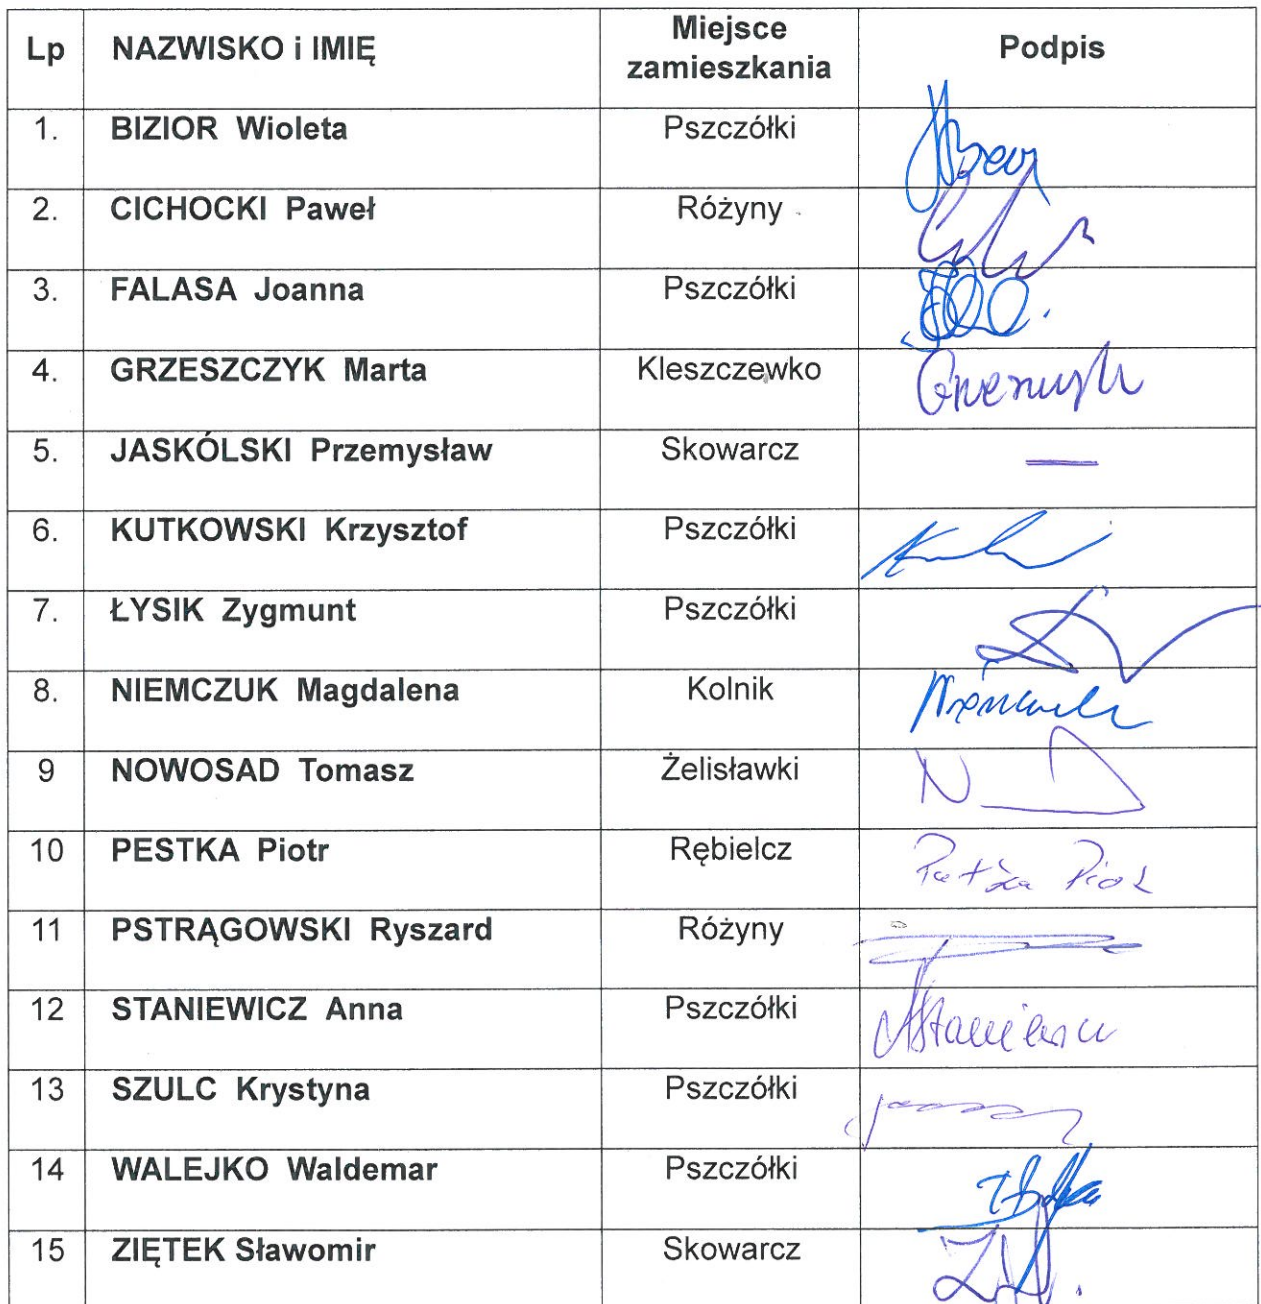 Lp NAZWISKO i IMIĘ Miejsce zamieszkania Podpis
1. BIZIOR Wioleta Pszczółki
2. CICHOCKI Paweł Różyny
3. FALASA Joanna Pszczółki
4. GRZESZCZYK Marta Kleszczewko
5. JASKÓLSKI Przemysław Skowarcz —
6. KUTKOWSKI Krzysztof Pszczółki
7. ŁYSIK Zygmunt Pszczółki
8. NIEMCZUK Magdalena Kolnik
9 NOWOSAD Tomasz Żelisławki
10 PESTKA Piotr Rębielcz
11 PSTRĄGOWSKI Ryszard Różyny
12 STANIEWICZ Anna Pszczółki
13 SZULC Krystyna Pszczółki
14 WALEJKO Waldemar Pszczółki
15 ZIĘTEK Sławomir Skowarcz